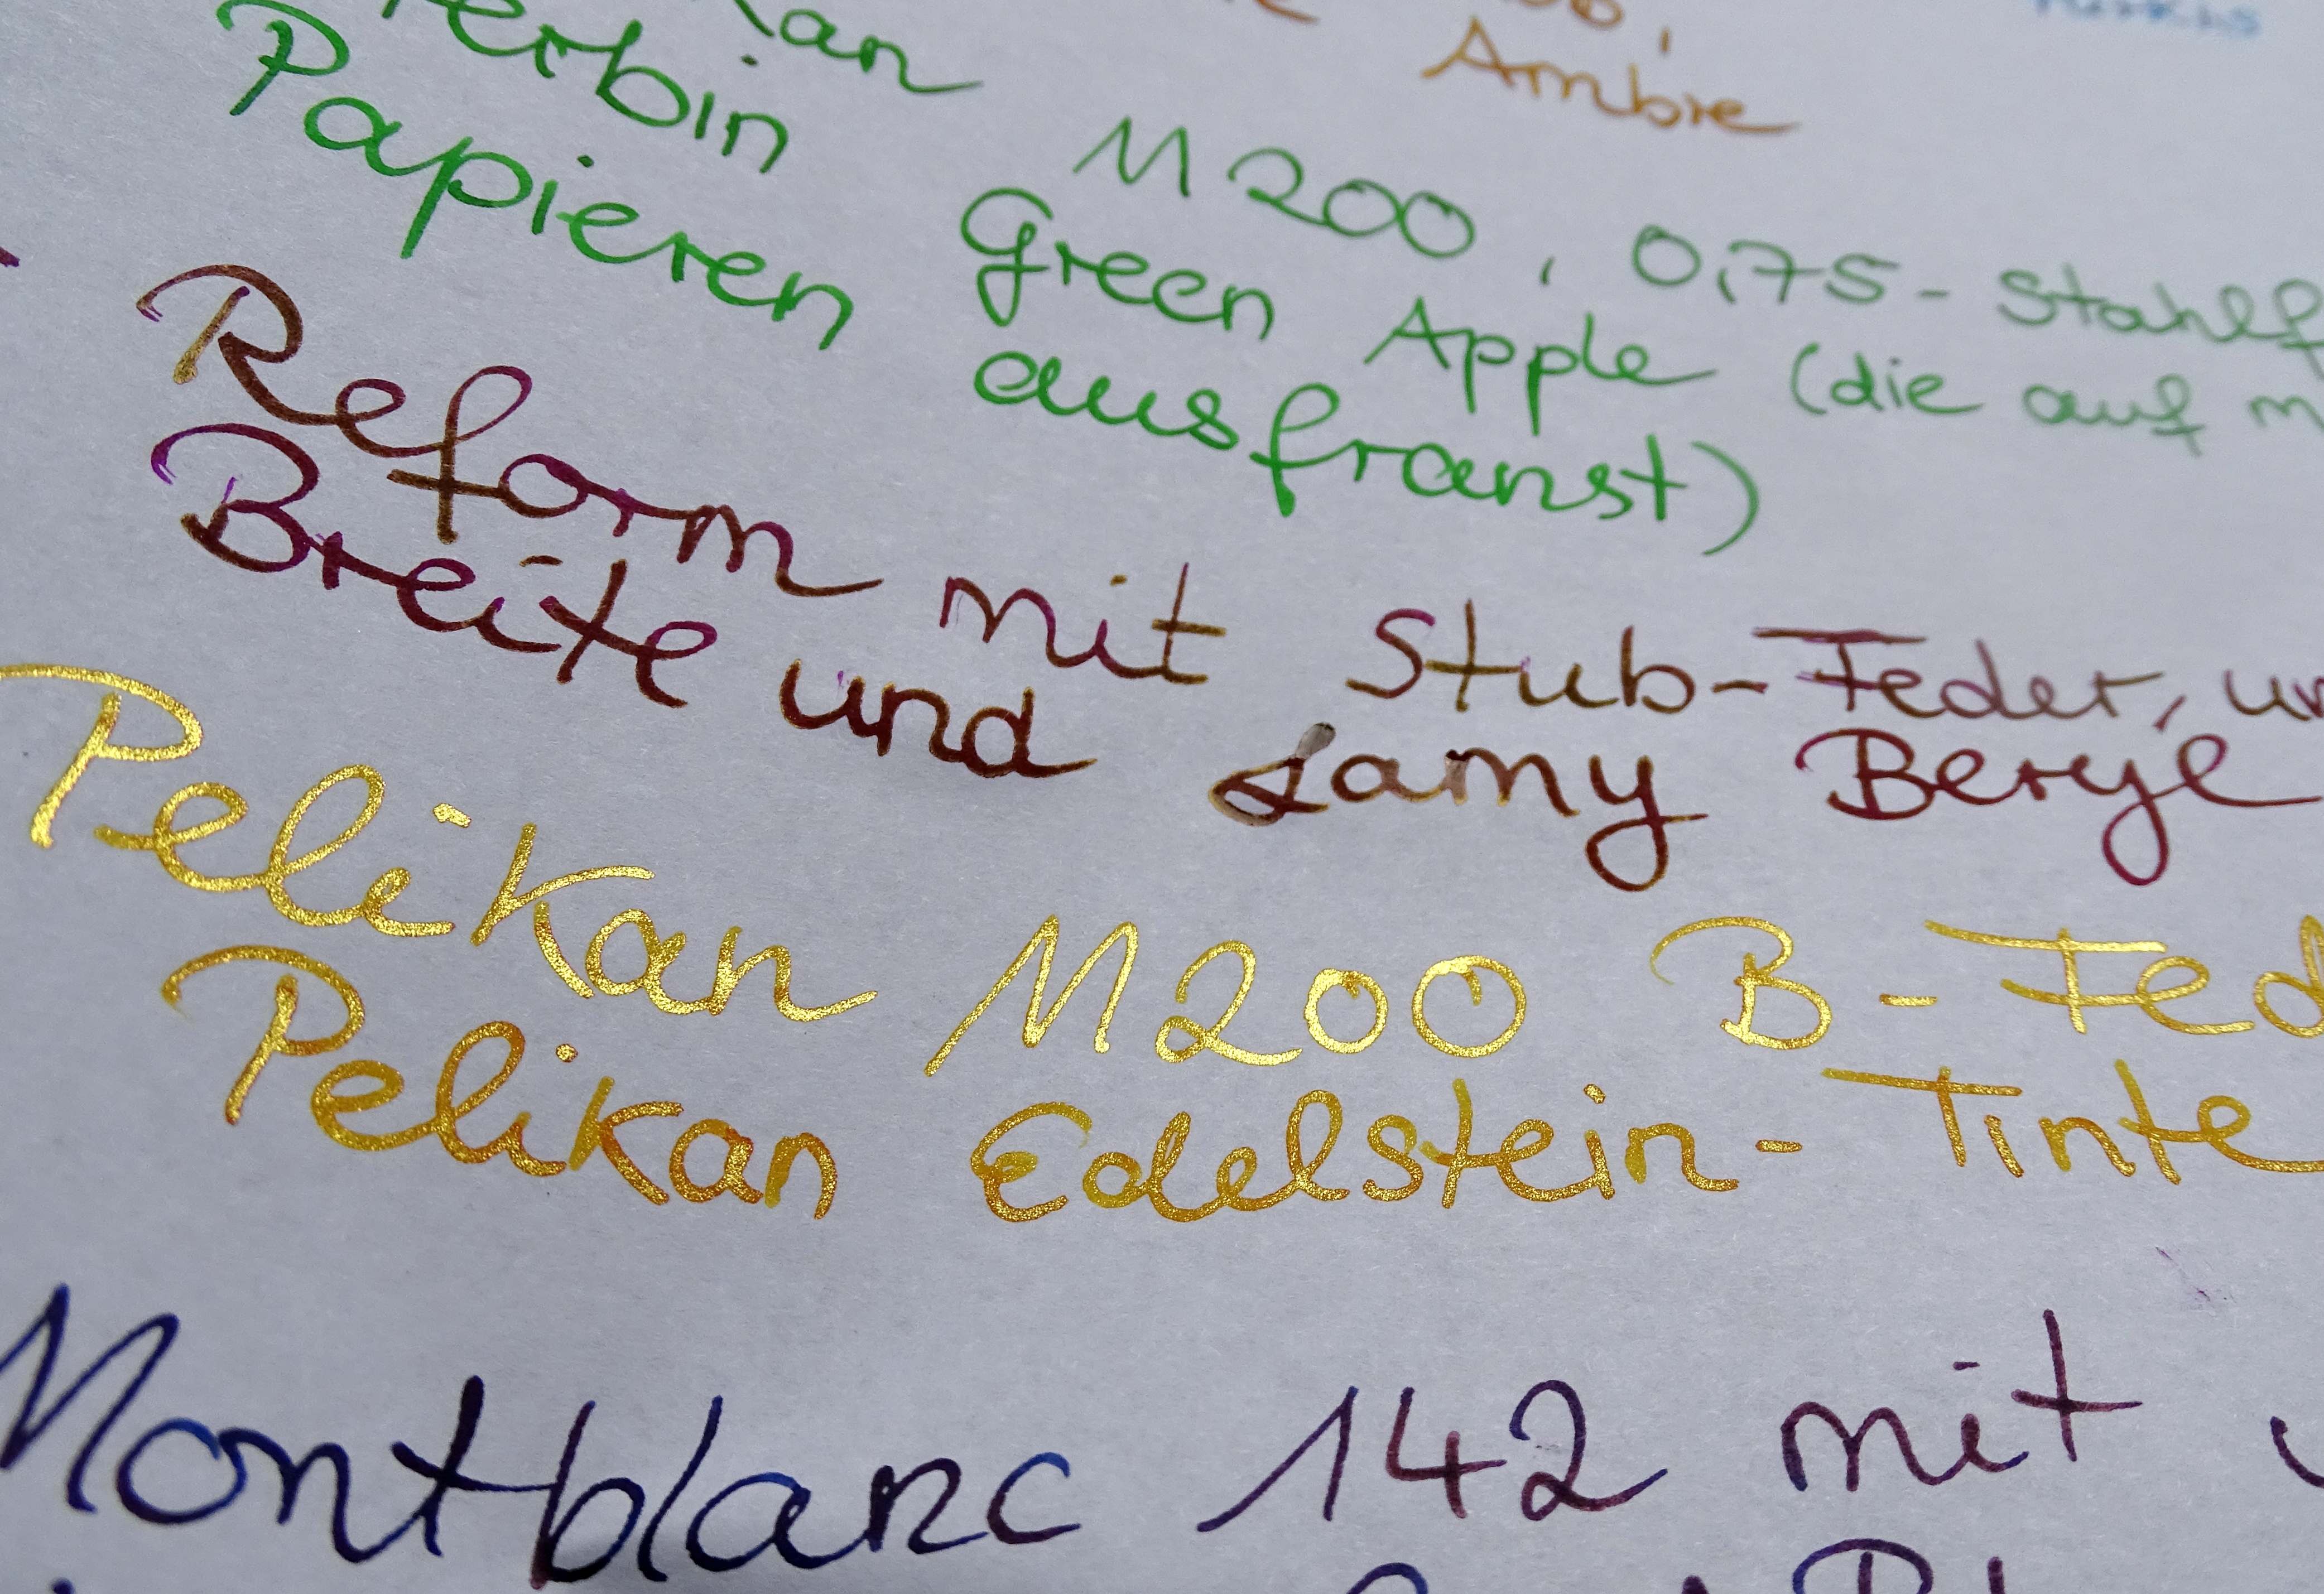 Ambre
M200, 0,75-Stahlf
Green Apple (die auf m
Papieren ausfranst)
Reform mit Stub-Feder, un
Breite und Lamy Beryl
Pelikan M200 B-Fed
Pelikan Edelstein-Tinte
Montblanc 142 mit